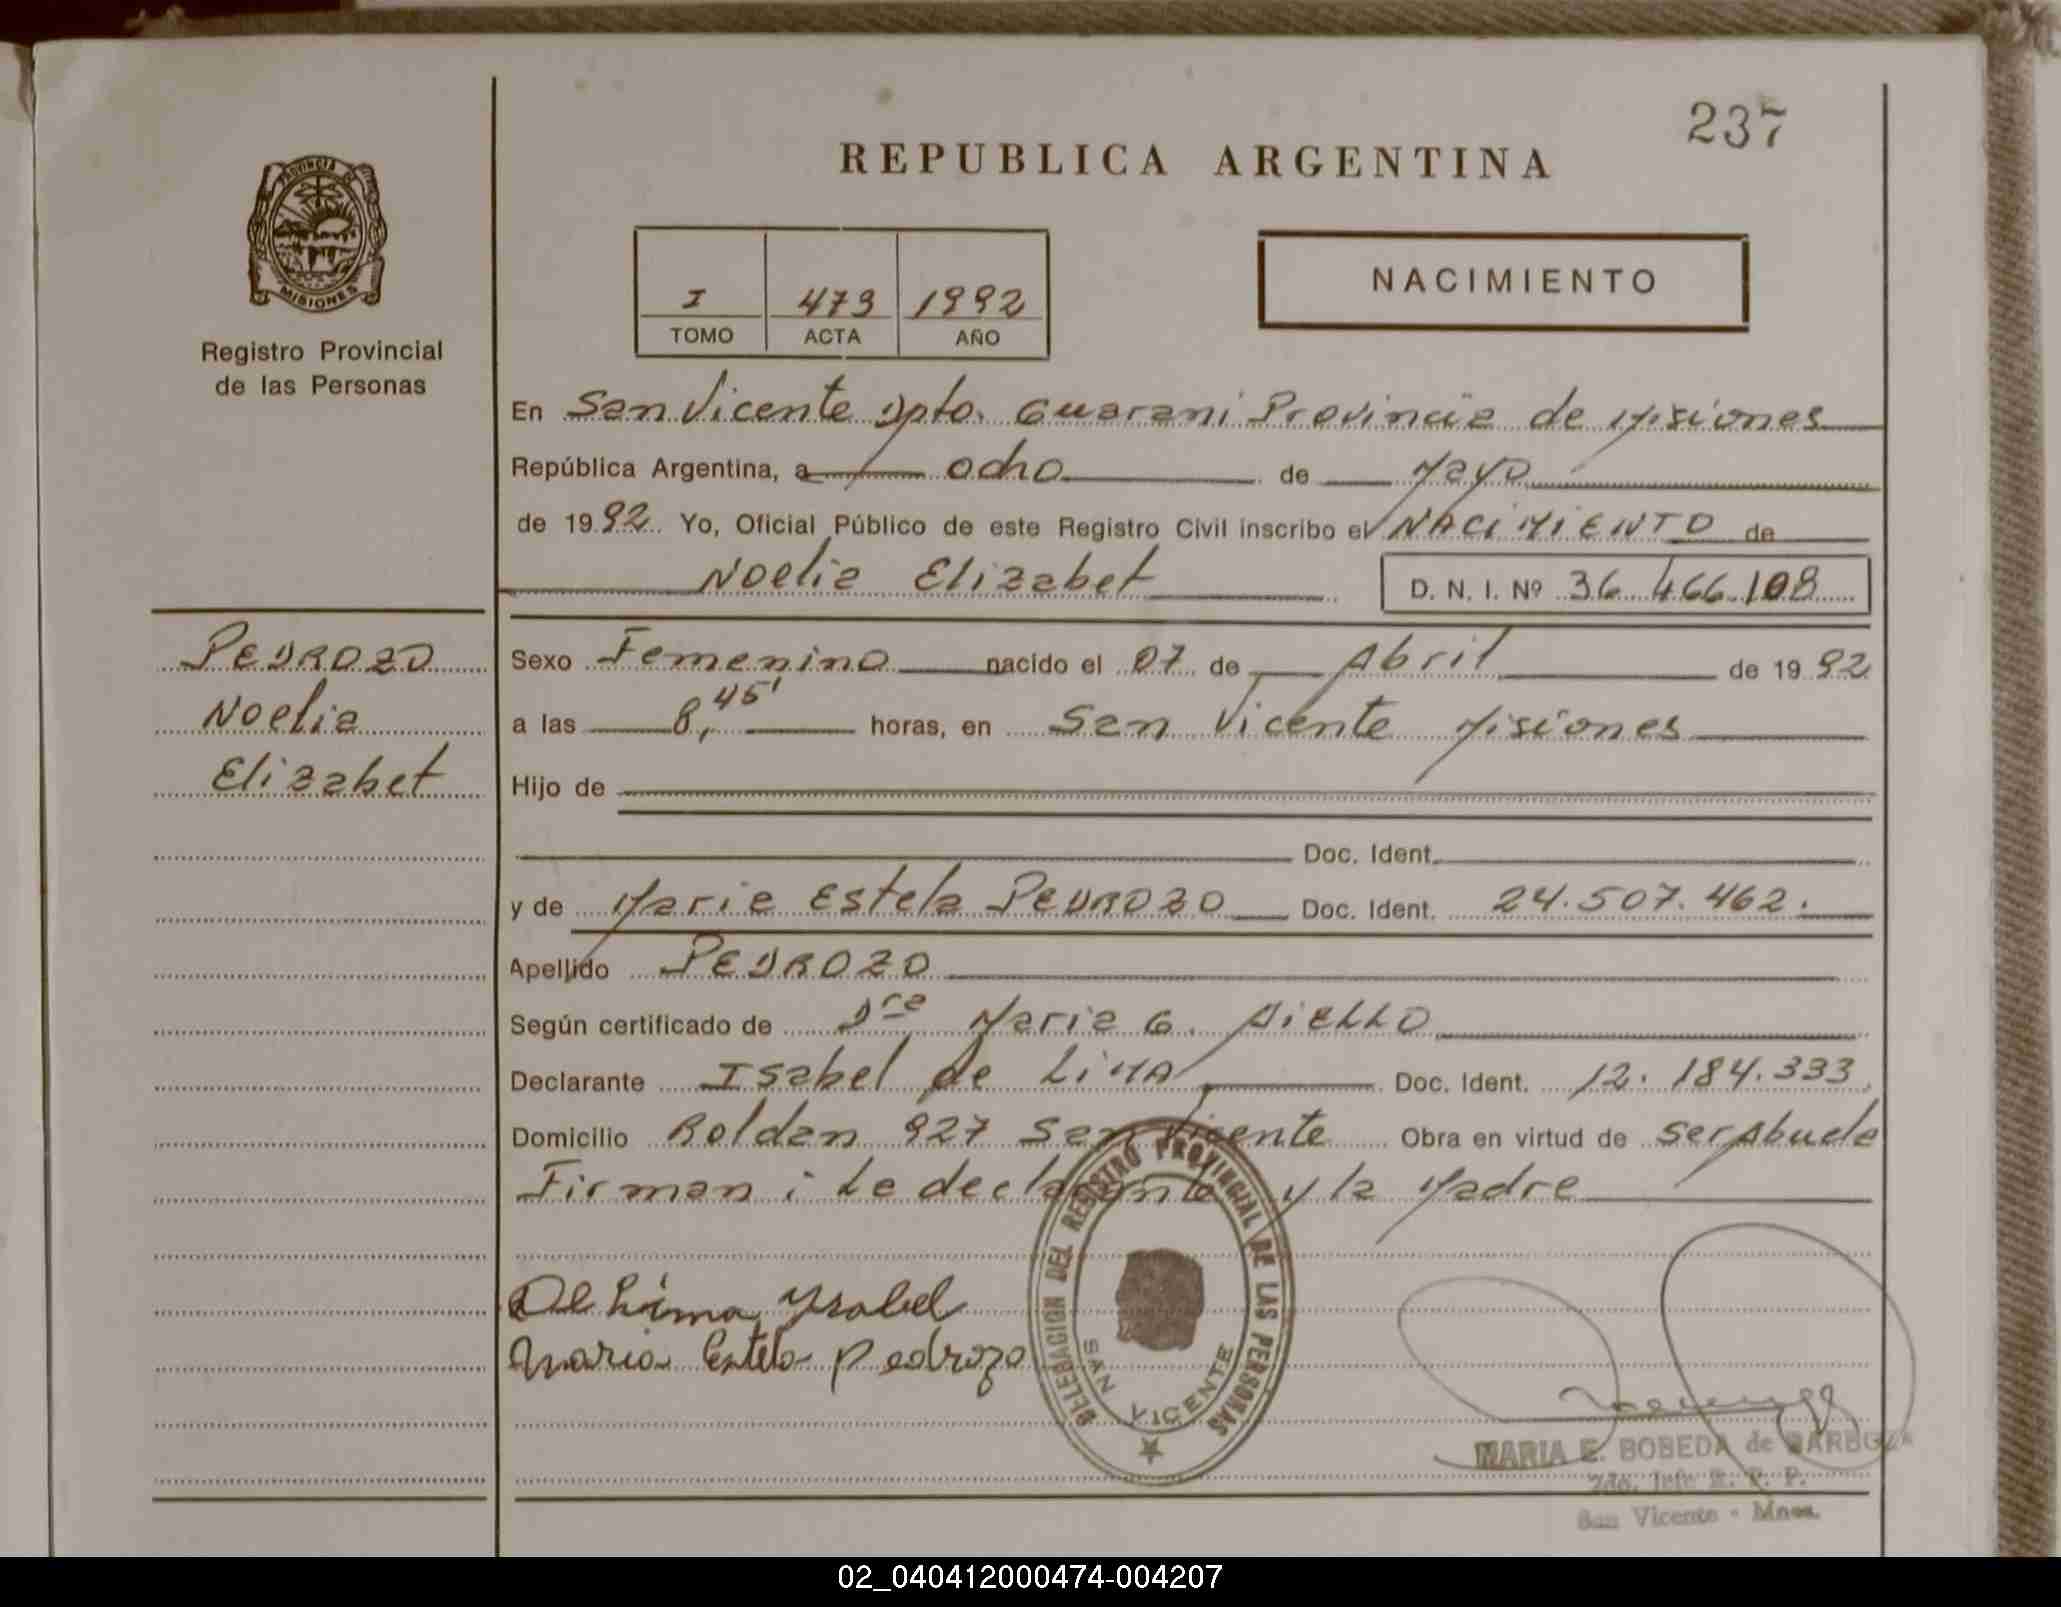 237
REPUBLICA ARGENTINA
PROVINCIA DE
MISIONES
Registro Provincial
de las Personas
I 473 1992
TOMO ACTA AÑO
NACIMIENTO
En San Vicente Dpto. Guarani Provincia de Misiones
República Argentina, a ocho de Mayo
de 1992 Yo, Oficial Público de este Registro Civil inscribo el NACIMIENTO de
Noelia Elizabet D. N. I. Nº 36 466.108
PEDROZO
Noelia
Elizabet
Sexo Femenino nacido el 07 de Abril de 1992
a las 8,45' horas, en San Vicente Misiones
Hijo de
Doc. Ident.
y de Maria Estela PEDROZO Doc. Ident. 24.507.462.
Apellido PEDROZO
Según certificado de Dra Maria G. AiELLO
Declarante Isabel de LiMA Doc. Ident. 12.184.333
Domicilio Roldan 927 San Vicente Obra en virtud de ser Abuela
Firman: La declarante y la Madre
De Lima Ysabel
Maria Estela Pedrozo
DELEGACION DEL REGISTRO PROVINCIAL DE LAS PERSONAS
SAN VICENTE
MARIA E. BOBEDA de
2do. Jefe R. P. P.
San Vicente - Mnes.
02_040412000474-004207